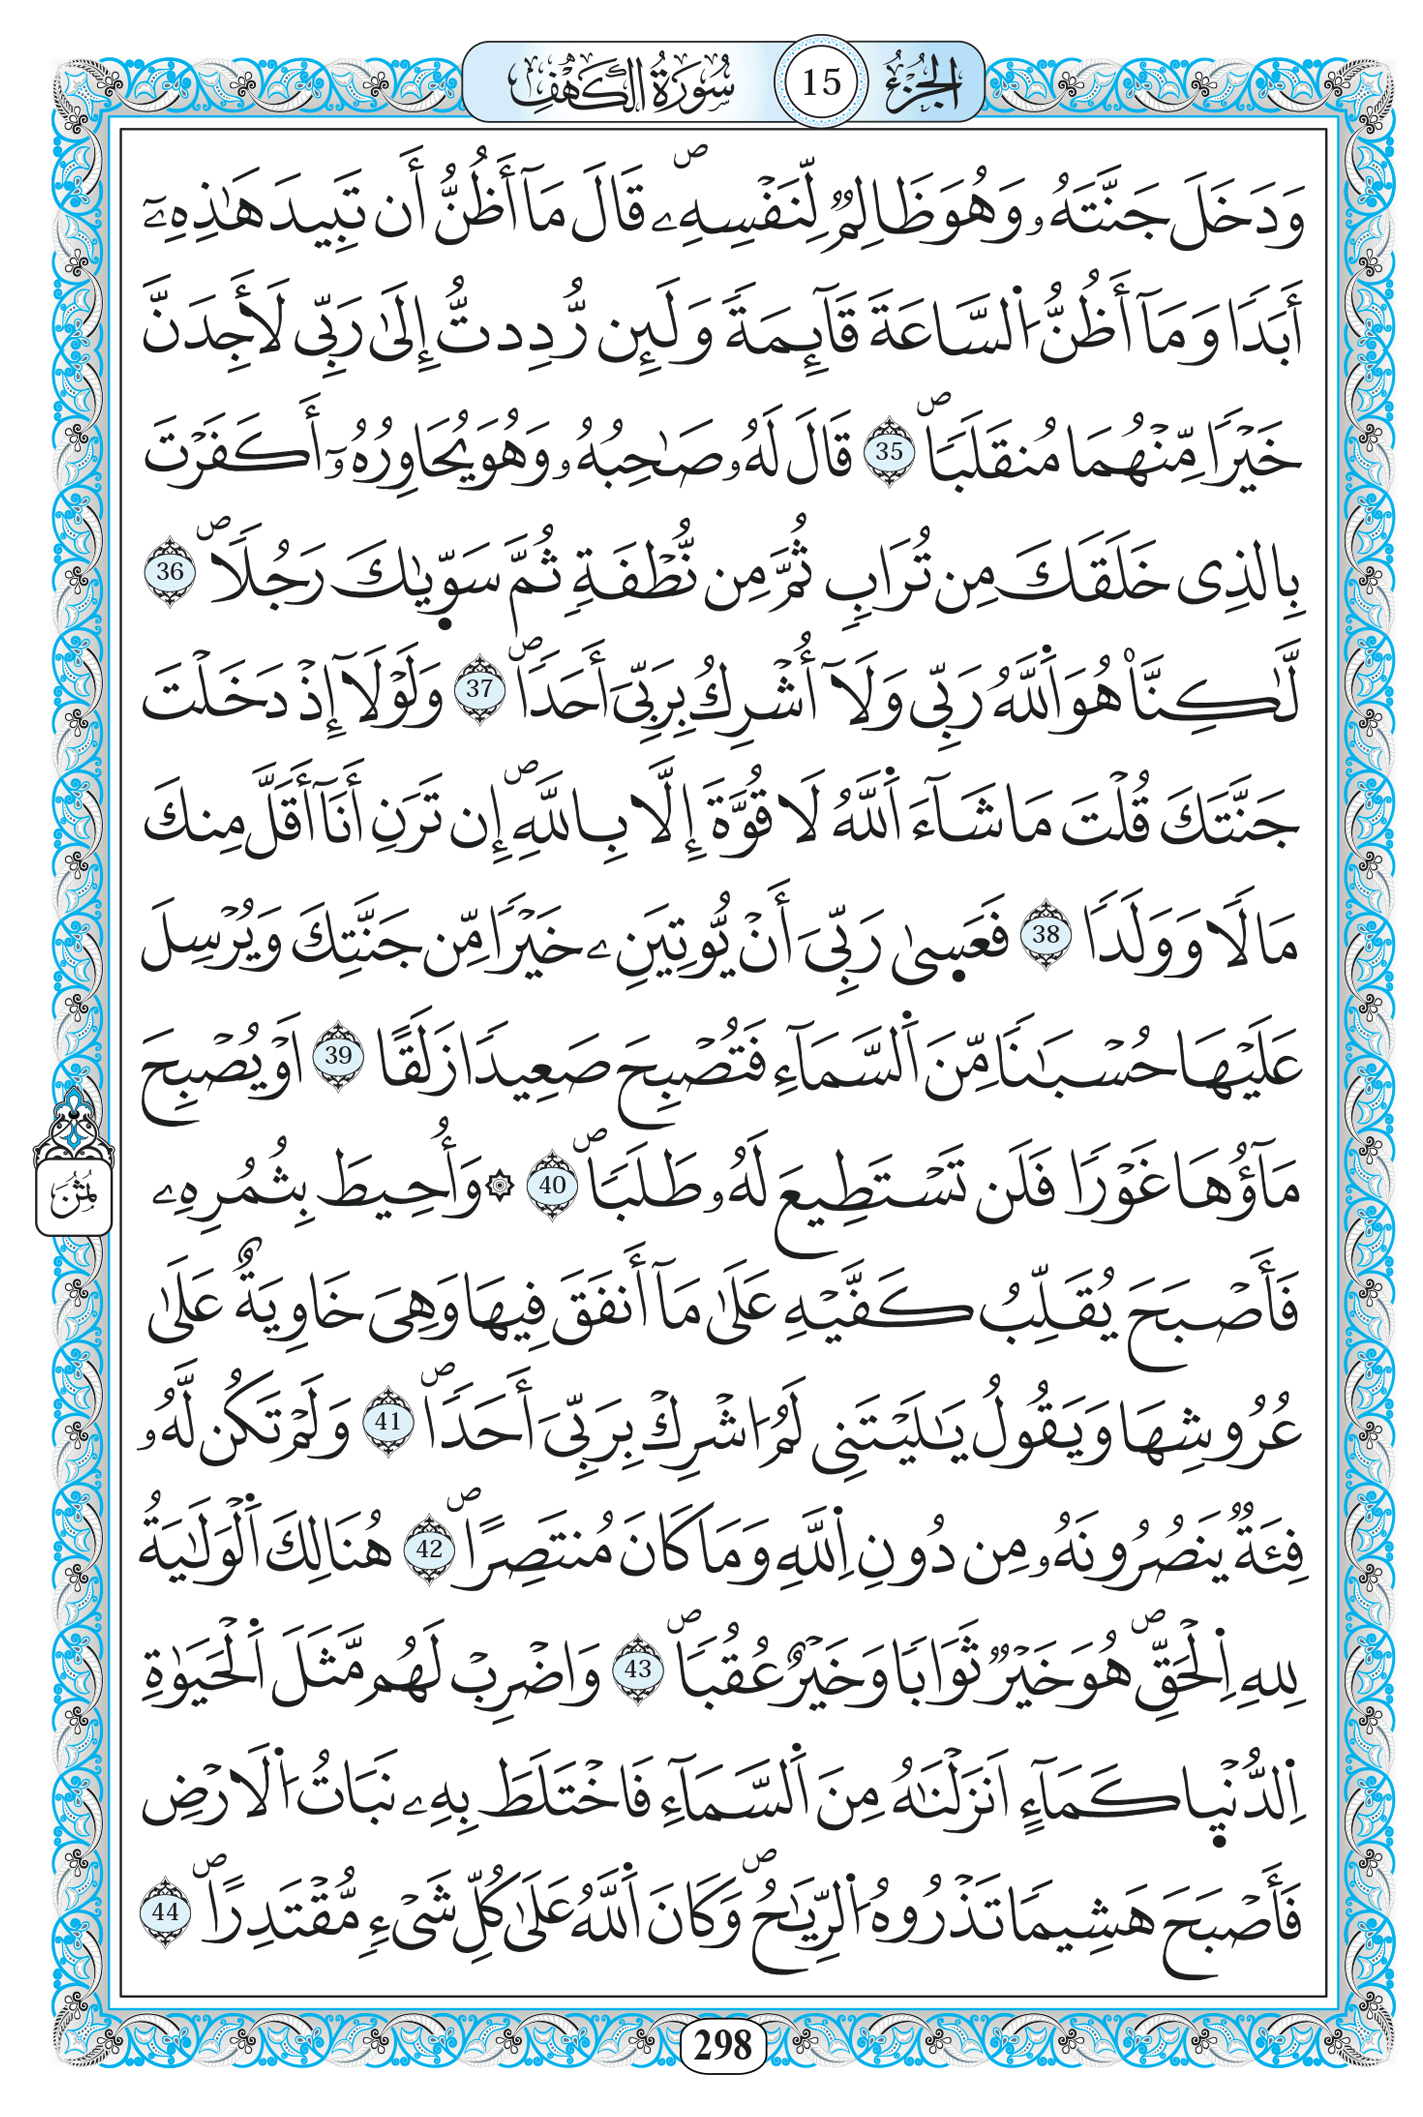 الجزء 15 سورة الكهف
وَدَخَلَ جَنَّتَهُۥ وَهُوَ ظَالِمٞ لِّنَفْسِهِۦۖ قَالَ مَآ أَظُنُّ أَن تَبِيدَ هَٰذِهِۦٓ
أَبَدٗا وَمَآ أَظُنُّ اُ۬لسَّاعَةَ قَآئِمَةٗ وَلَئِن رُّدِدتُّ إِلَىٰ رَبِّي لَأَجِدَنَّ
خَيْرٗا مِّنْهُمَا مُنقَلَبٗاۖ 35 قَالَ لَهُۥ صَٰحِبُهُۥ وَهُوَ يُحَاوِرُهُۥٓ أَكَفَرْتَ
بِالذِي خَلَقَكَ مِن تُرَابٖ ثُمَّ مِن نُّطْفَةٖ ثُمَّ سَوّ۪يٰكَ رَجُلٗاۖ 36
لَّٰكِنَّا۠ هُوَ اَ۬للَّهُ رَبِّي وَلَآ أُشْرِكُ بِرَبِّيَ أَحَدٗاۖ 37 وَلَوْلَآ إِذْ دَخَلْتَ
جَنَّتَكَ قُلْتَ مَا شَآءَ اَ۬للَّهُ لَا قُوَّةَ إِلَّا بِاللَّهِۖ إِن تَرَنِ أَنَآ أَقَلَّ مِنكَ
مَالٗا وَوَلَدٗا 38 فَعَس۪يٰ رَبِّيَ أَنْ يُّوتِيَنِۦ خَيْرٗا مِّن جَنَّتِكَ وَيُرْسِلَ
عَلَيْهَا حُسْبَٰنٗا مِّنَ اَ۬لسَّمَآءِ فَتُصْبِحَ صَعِيدٗا زَلَقًا 39 اَوْ يُصْبِحَ
مَآؤُهَا غَوْرٗا فَلَن تَسْتَطِيعَ لَهُۥ طَلَبٗاۖ 40 ۞وَأُحِيطَ بِثُمُرِهِۦ
فَأَصْبَحَ يُقَلِّبُ كَفَّيْهِ عَلَىٰ مَآ أَنفَقَ فِيهَا وَهِيَ خَاوِيَةٌ عَلَىٰ
عُرُوشِهَا وَيَقُولُ يَٰلَيْتَنِي لَمُ اُشْرِكْ بِرَبِّيَ أَحَدٗاۖ 41 وَلَمْ تَكُن لَّهُۥ
فِئَةٞ يَنصُرُونَهُۥ مِن دُونِ اِ۬للَّهِ وَمَا كَانَ مُنتَصِرًاۖ 42 هُنَالِكَ اَ۬لْوَلَٰيَةُ
لِلهِ اِ۬لْحَقِّۖ هُوَ خَيْرٞ ثَوَابٗا وَخَيْرٌ عُقُبٗاۖ 43 وَاضْرِبْ لَهُم مَّثَلَ اَ۬لْحَيَوٰةِ
اِ۬لدُّنْي۪ا كَمَآءٍ اَنزَلْنَٰهُ مِنَ اَ۬لسَّمَآءِ فَاخْتَلَطَ بِهِۦ نَبَاتُ اُ۬لَارْضِ
فَأَصْبَحَ هَشِيمٗا تَذْرُوهُ اُ۬لرِّيَٰحُۖ وَكَانَ اَ۬للَّهُ عَلَىٰ كُلِّ شَيْءٖ مُّقْتَدِرًاۖ 44
ثُمُن
298